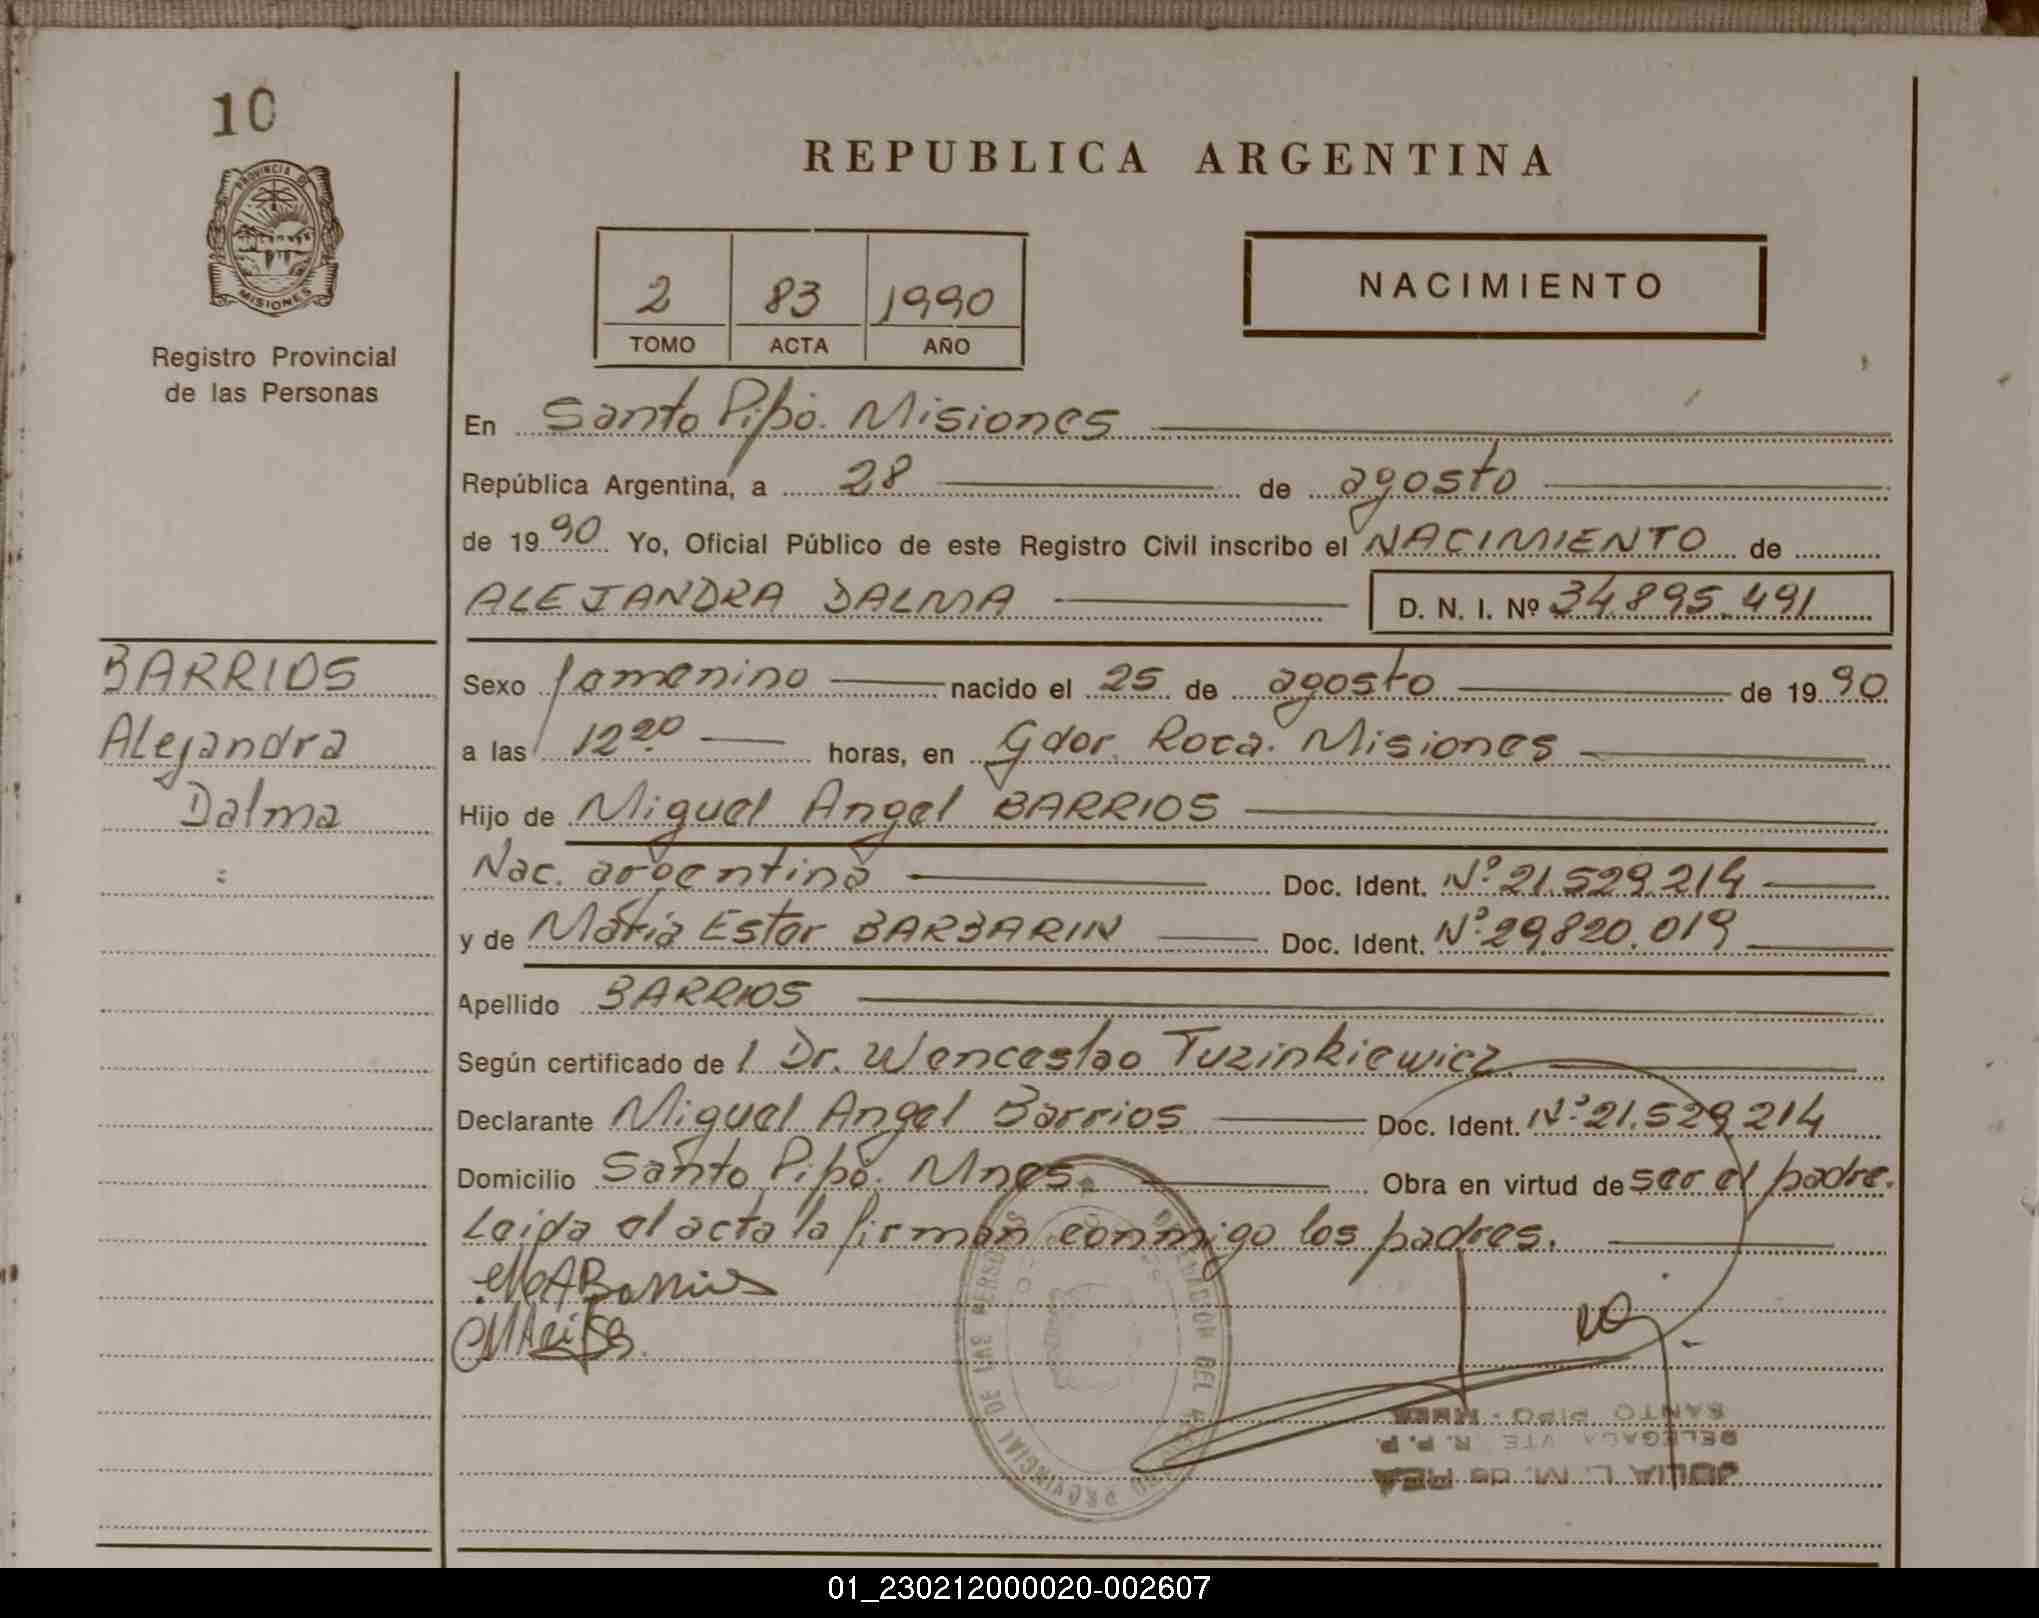 10
PROVINCIA DE
MISIONES
Registro Provincial
de las Personas
BARRIOS
Alejandra
Dalma
REPUBLICA ARGENTINA
2 83 1990
TOMO ACTA AÑO
NACIMIENTO
En Santo Pipó. Misiones
República Argentina, a 28 de agosto
de 1990 Yo, Oficial Público de este Registro Civil inscribo el NACIMIENTO de
ALEJANDRA DALMA D. N. I. Nº 34.895.491
Sexo femenino nacido el 25 de agosto de 1990
a las 12 20 horas, en Gdor. Roca. Misiones
Hijo de Miguel Angel BARRIOS
Nac. argentina Doc. Ident. Nº 21.529.214
y de María Ester BARBARIN Doc. Ident. Nº 29.820.019
Apellido BARRIOS
Según certificado de l Dr. Wenceslao Tuzinkiewicz
Declarante Miguel Angel Barrios Doc. Ident. Nº 21.529.214
Domicilio Santo Pipó. Mnes. Obra en virtud de ser el padre.
Leida el acta la firman conmigo los padres.
DELEGACION DEL REGISTRO PROVINCIAL DE LAS PERSONAS
JULIA L. M. de REA
DELEGADA VTE R. P. P.
SANTO PIPO - MNES
01_230212000020-002607